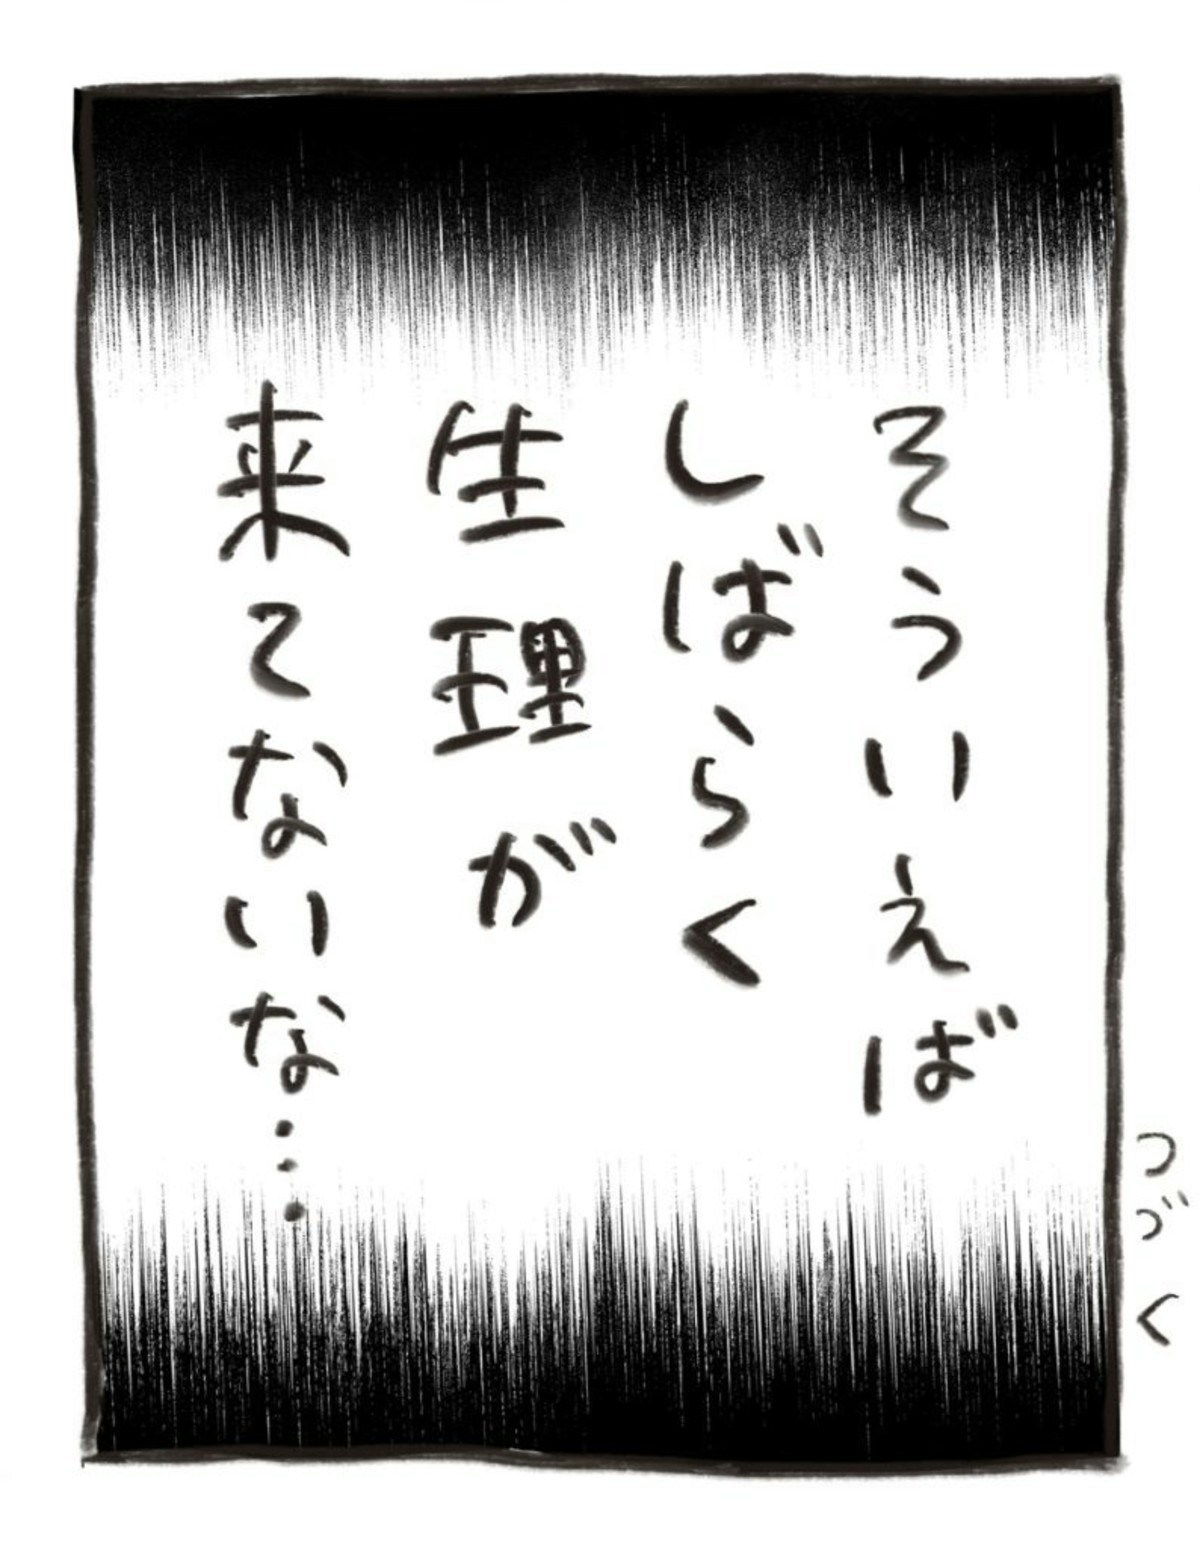 そういえば
しばらく
生理が
来てないな…
つづく